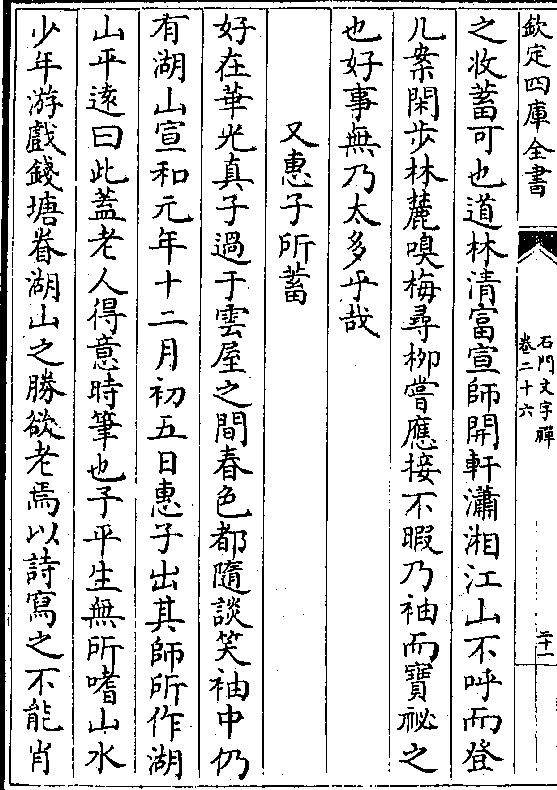 欽定四庫全書
石門文字禪
卷二十六
二十一
之收蓄可也道林清富宣師開軒瀟湘江山不呼而登
几案閑步林麓嗅梅尋栁嘗應接不暇乃袖而寶祕之
也好事無乃太多乎哉
又惠子所蓄
好在華光真子過于雲屋之間春色都隨談笑袖中仍
有湖山宣和元年十二月初五日惠子出其師所作湖
山平逺曰此蓋老人得意時筆也予平生無所嗜山水
少年游戲錢塘眷湖山之勝欲老焉以詩寫之不能肖